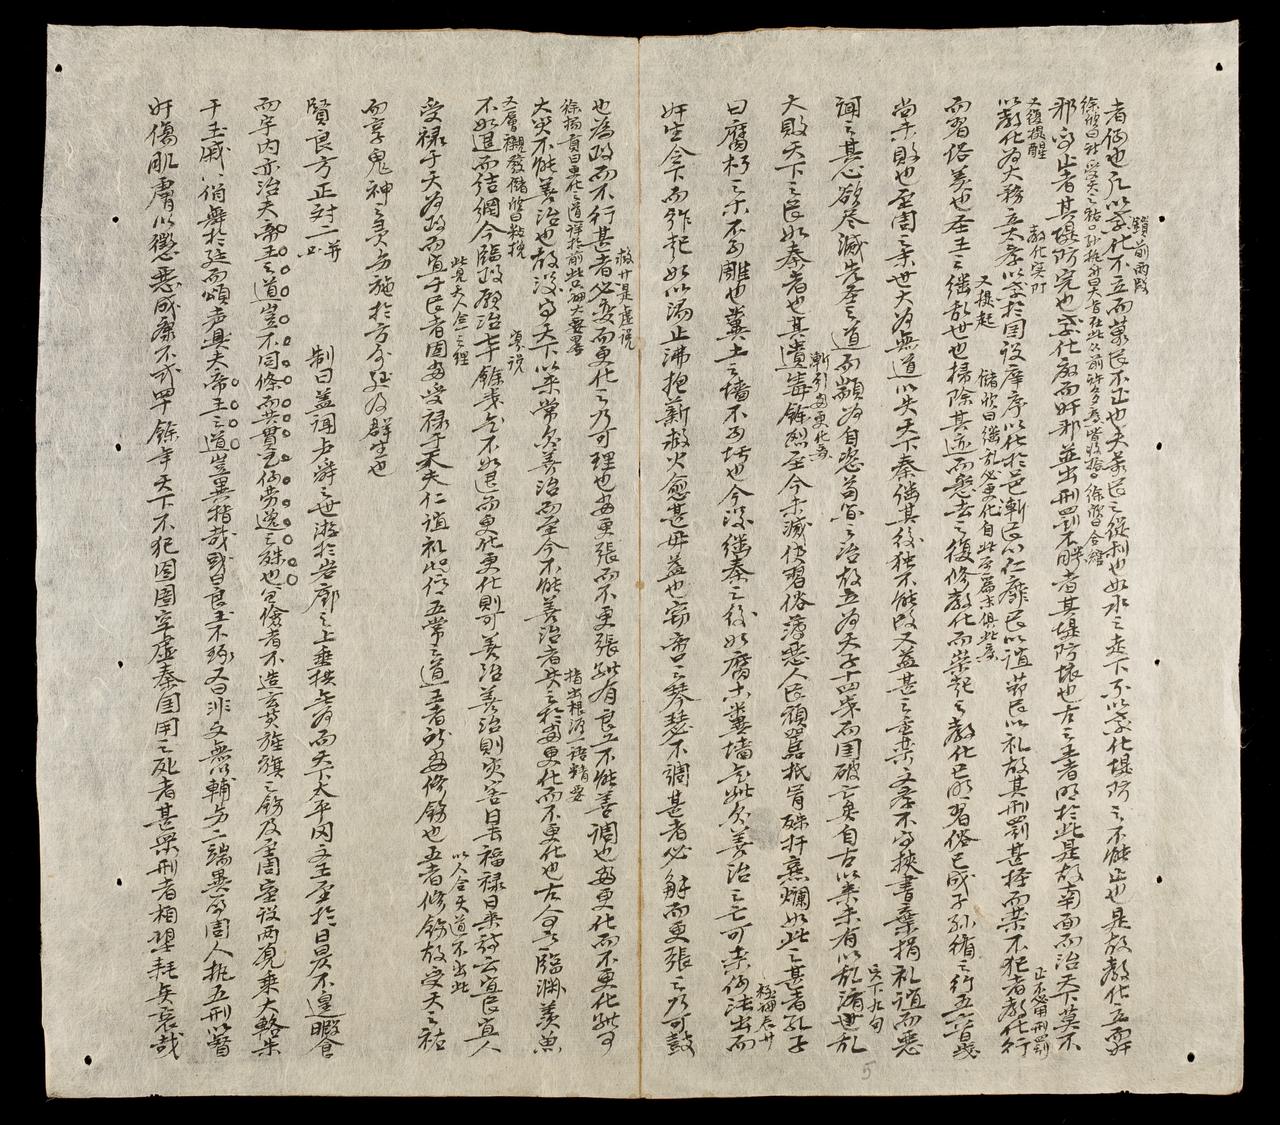 鎖前兩段
者何也凡以教化不立而萬民不正也夫萬民之從利也如水之走下不以教化堤防之不能止也是故教化立而奸
邪皆止者其堤防完也教化廢而奸邪並出刑罰不勝者其堤防壞也古之王者明於此是故南面而治天下莫不
又復提醒
教化实際
以教化為大務立大学以教於国設庠序以化於邑漸民以仁靡民以谊節民以礼故其刑罰甚輕而禁不犯者教化行
正不必用刑罰
又提起
儲欣曰繼乱必更化自此至篇末俱此意
而習俗美也圣王之継乱世也掃除其迹而悉去之復修教化而崇起之教化已明習俗已成子孙循之行五六百歲
尚未敗也至周之末世大為無道以失天下秦継其後独不能改又益甚之重禁文学不得挾書棄捐礼谊而惡
闻之其心欲尽滅先圣之道而顓為自恣苟簡之治故立為天子十四歲而国破亡矣自古以来未有以乱濟乱
漸引出更化意
大敗天下之民如秦者也其遺毒餘烈至今未滅使習俗薄惡人民頑嚚抵冒殊扞熟爛如此之甚者孔子
曰腐朽之木不可雕也糞土之墻不可圬也今汉継秦之後如腐木糞墻矣虽欲善治之亡可奈何法出而
奸生令下而诈起如以湯止沸抱薪救火愈甚毋益也窃譬之琴瑟不調甚者必解而更張之乃可鼓
也為政而不行甚者必变而更化之乃可理也当更張而不更張虽有良工不能善調也当更化而不更化虽有
指出根源一語精要
大贤不能善治也故汉得天下以来常欲善治而至今不能善治者失之於当更化而不更化也古人有言臨渊羡魚
不如退而结網今臨政願治七十餘歲矣不如退而更化更化則可善治善治則灾害日去福禄日来诗云宜民宜人
此見天人合一之理
以人合天道不出此
受禄于天為政而宜于民者固当受禄于天夫仁谊礼知信五常之道王者所当修飭也五者修飭故受天之祐
而享鬼神之灵德施於方外延及群生也
賢良方正对二
制曰盖闻虞舜之世游於岩廊之上垂拱无為而天下太平周文王至於日昃不遑暇食
而宇内亦治夫帝王之道豈不同條而共贯与何劳逸之殊也盖儉者不造玄黄旌旗之飾及至周室设两观乘大輅朱
干玉戚八佾舞於庭而頌声興夫帝王之道豈異指哉或曰良玉不琢又曰非文無以輔德二端異焉殷人执五刑以督
奸傷肌膚以懲惡成康不式四十餘年天下不犯囹圄空虛秦国用之死者甚眾刑者相望耗矣哀哉